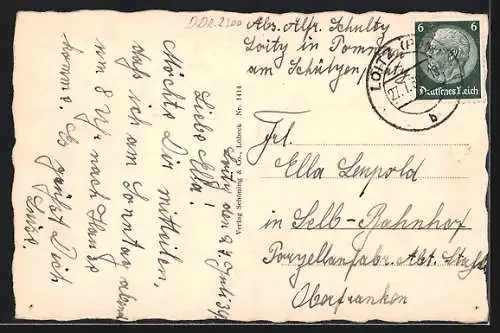 DDR-2300
Abs. Alfr. Schultz
Loitz in Pomm.
am Schützen
Loitz, den 27. Juli 34
Liebe Ella!
Möchte Dir mitteilen,
daß ich am Sonntag abend
um 8 Uhr nach Hause
komme. Es grüßt Dich
Verlag Schöning & Co., Lübeck Nr. 1414
6 6
Deutsches Reich
LOITZ
27.7.
b
Frl.
Ella Leupold
in Selb-Bahnhof
Porzellanfabr. Abt.
Oberfranken